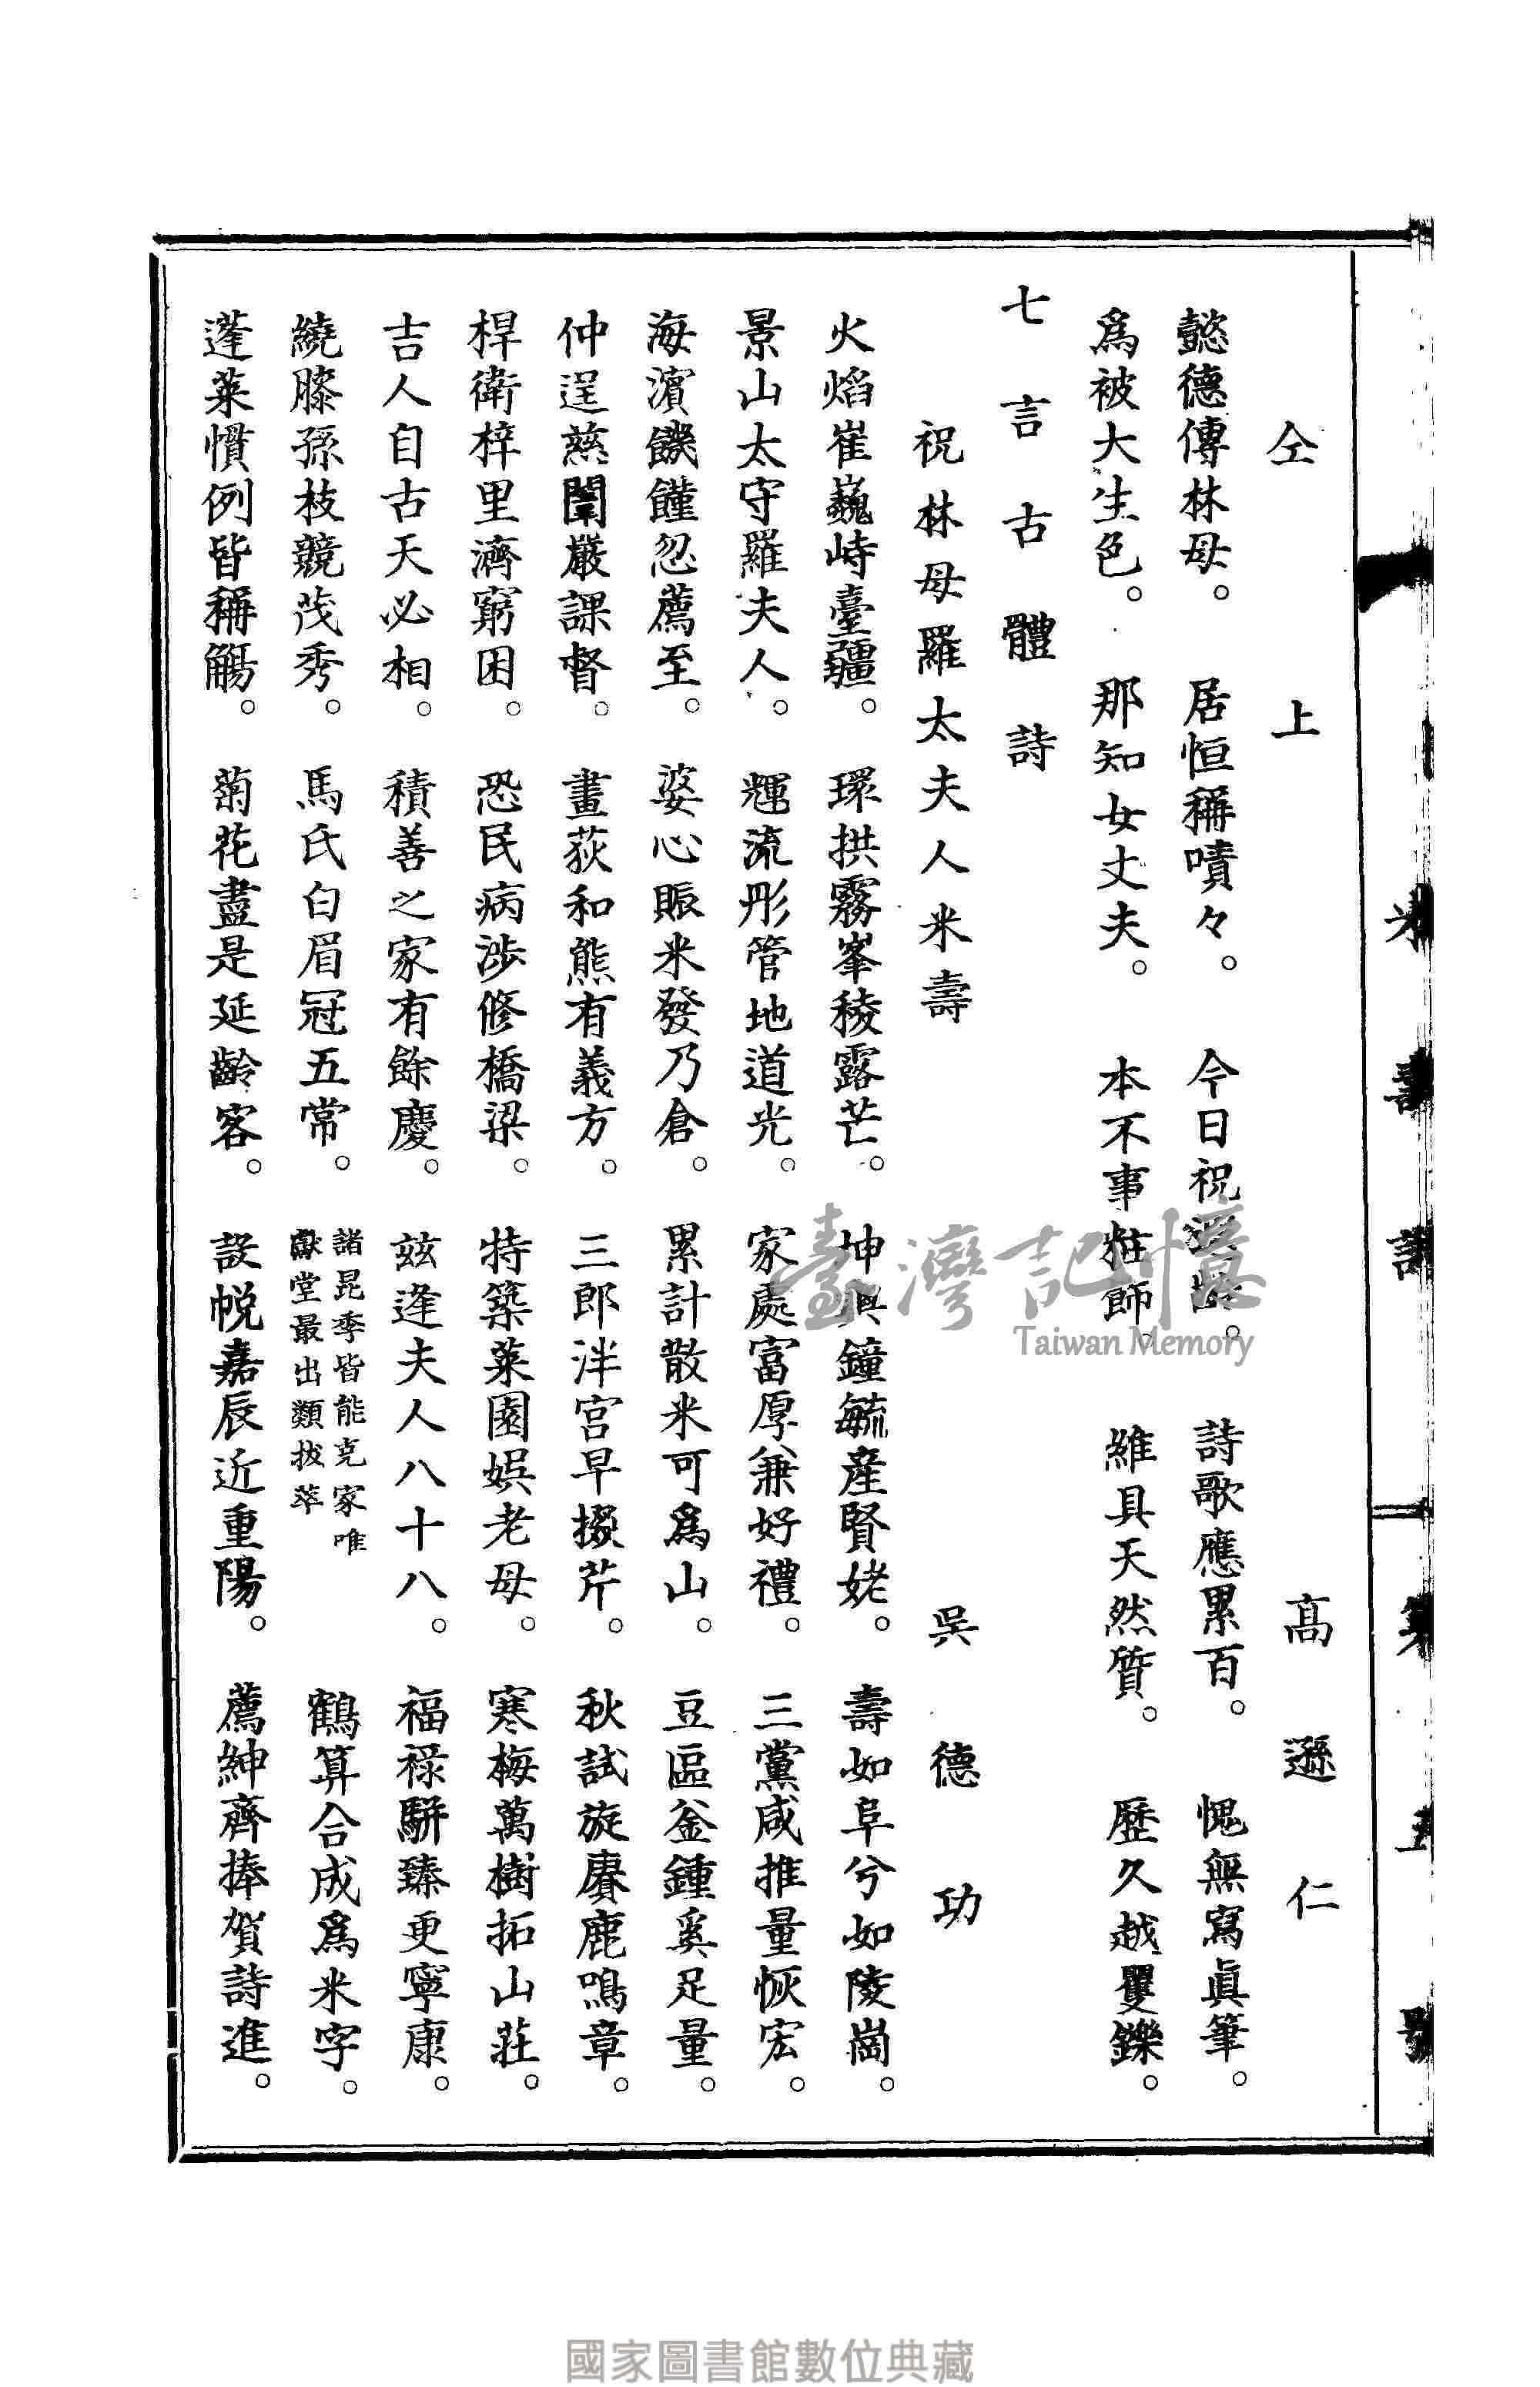 仝上 高遜仁
懿德傳林母。 居恒稱嘖々。 今日祝遐齡。 詩歌應累百。 愧無寫眞筆。
爲被大生色。 那知女丈夫。 本不事粧飾。 維具天然質。 歷久越矍鑠。
七言古體詩
祝林母羅太夫人米壽 吳德功
火焰崔巍峙臺疆。 環拱霧峯稜露芒。 坤輿鐘毓産賢姥。 壽如阜兮如陵崗。
景山太守羅夫人。 輝流彤管地道光。 家處富厚兼好禮。 三黨咸推量恢宏。
海濵饑饉忽薦至。 婆心賑米發乃倉。 累計散米可爲山。 豆區釜鍾奚足量。
仲逞慈闈嚴課督。 畫荻和熊有義方。 三郎泮宮早掇芹。 秋試旋賡鹿鳴章。
桿衛梓里濟窮困。 恐民病涉修橋梁。 特築萊園娛老母。 寒梅萬樹拓山莊。
吉人自古天必相。 積善之家有餘慶。 玆逢夫人八十八。 福祿駢臻更寧康。
繞膝孫枝競茂秀。 馬氏白眉冠五常。 諸昆季皆能克家唯獻堂最出類拔萃 鶴算合成爲米字。
蓬萊慣例皆稱觴。 菊花盡是延齡客。 設帨嘉辰近重陽。 薦紳齊捧賀詩進。
臺灣記憶
Taiwan Memory
國家圖書館數位典藏